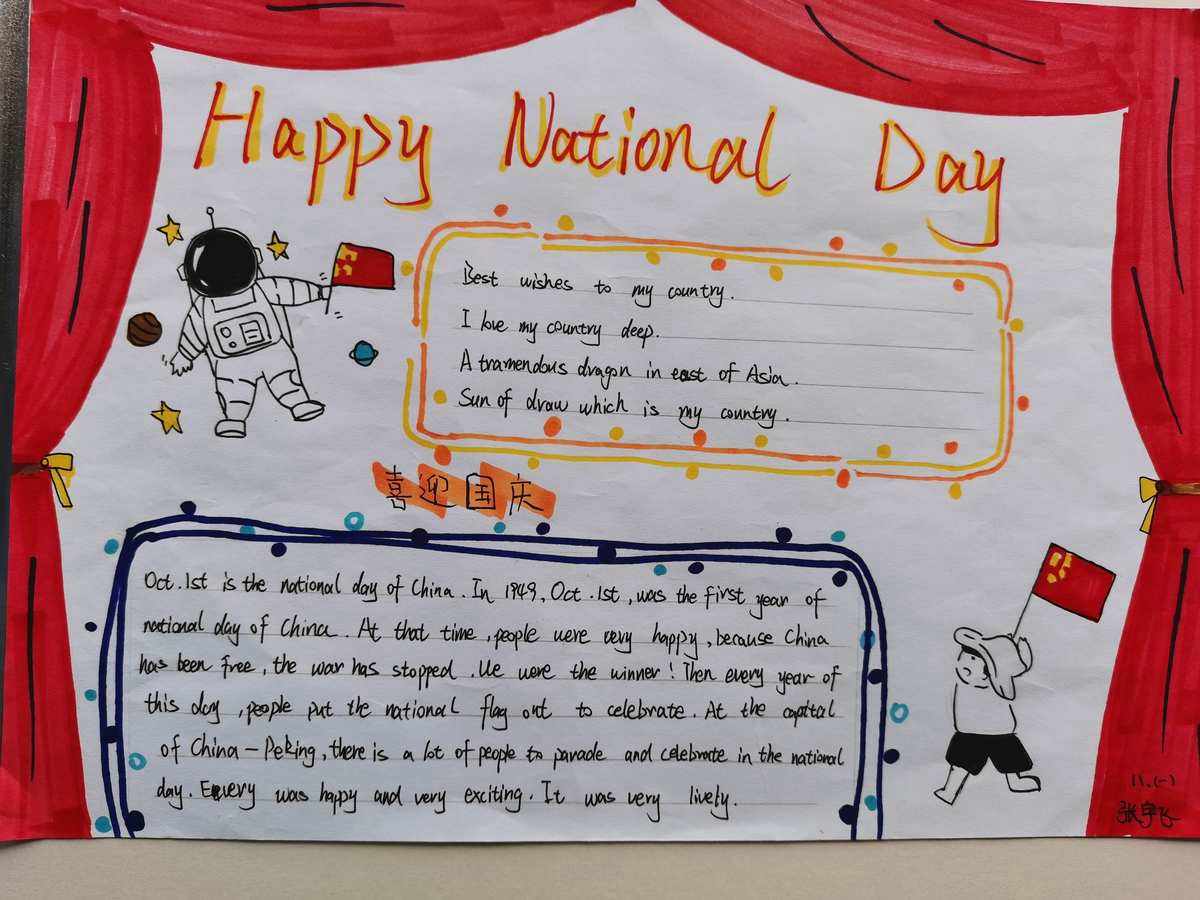 Happy National Day
Best wishes to my country.
I love my country deep.
A tramendous dragon in east of Asia.
Sun of draw which is my country.
喜迎国庆
Oct.1st is the national day of China. In 1949, Oct.1st, was the first year of
national day of China. At that time, people were very happy, because China
has been free, the war has stopped. We were the winner! Then every year of
this day, people put the national flag out to celebrate. At the capital
of China-Peking, there is a lot of people to parade and celebrate in the national
day. Envery was happy and very exciting. It was very lively.
11.(一)
张宇飞